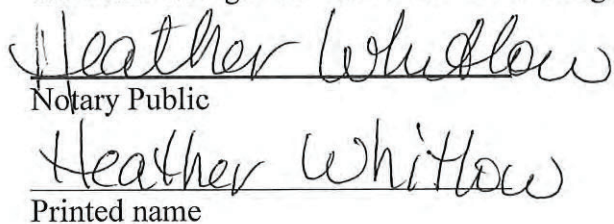 Heather Whitlow
Notary Public
Heather Whitlow
Printed name